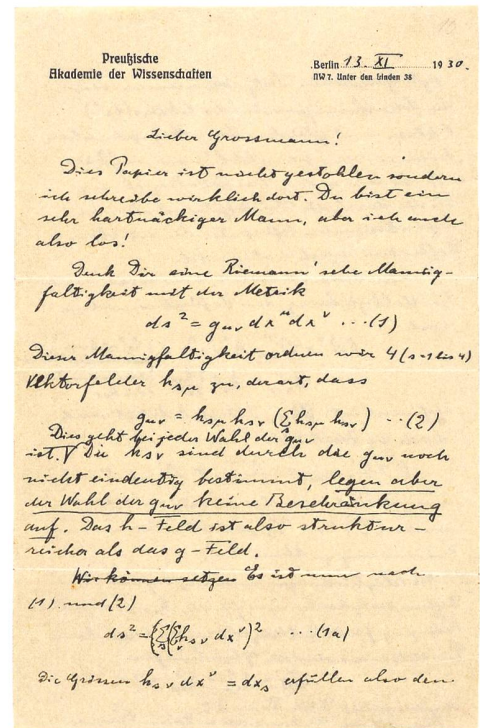 Preußische
Akademie der Wissenschaften
Berlin 13. XI 1930.
NW 7. Unter den Linden 38
Lieber Grossmann!
Dies Papier ist nicht gestohlen sondern
ich schreibe wirklich dort. Du bist ein
sehr hartnäckiger Mann, aber ich auch
also los!
Denk Dir eine Riemann'sche Mannig-
faltigkeit mit der Metrik
ds² = gμν dxμ dxν ...(1)
Dieser Mannigfaltigkeit ordnen wir 4 (s=1 bis 4)
Vektorfelder hsμ zu, derart, dass
gμν = hsμ hsν (Σ hsμ hsν) ...(2)
Dies geht bei jeder Wahl der gμν
ist. Die hsν sind durch die gμν noch
nicht eindeutig bestimmt, legen aber
der Wahl der gμν keine Beschränkung
auf. Das h-Feld ist also struktur-
reicher als das g-Feld.
Wir können setzen Es ist nun nach
(1) und (2)
ds² = Σ(Σ hsν dxν)² ...(1a)
Die Grössen hsν dxν = dxs erfüllen also den